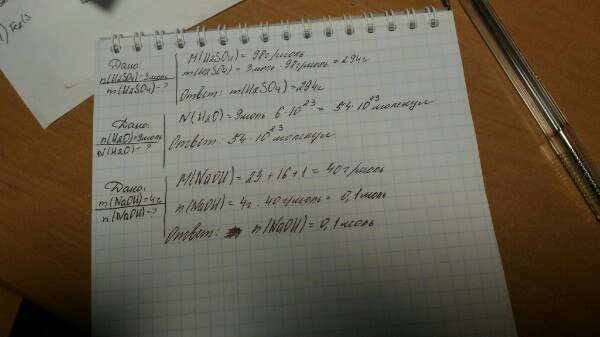 Дано:
n(H2SO4)=3моль
m(H2SO4)-?
M(H2SO4) = 98г/моль
m(H2SO4) = 3моль · 98г/моль = 294г
Ответ: m(H2SO4) = 294г
Дано:
n(H2O)=9моль
N(H2O)-?
N(H2O) = 9моль · 6·10²³ = 54·10²³ молекул
Ответ: 54·10²³ молекул
Дано:
m(NaOH)=4г
n(NaOH)-?
M(NaOH) = 23 + 16 + 1 = 40г/моль
n(NaOH) = 4г : 40г/моль = 0,1моль
Ответ: n(NaOH) = 0,1моль